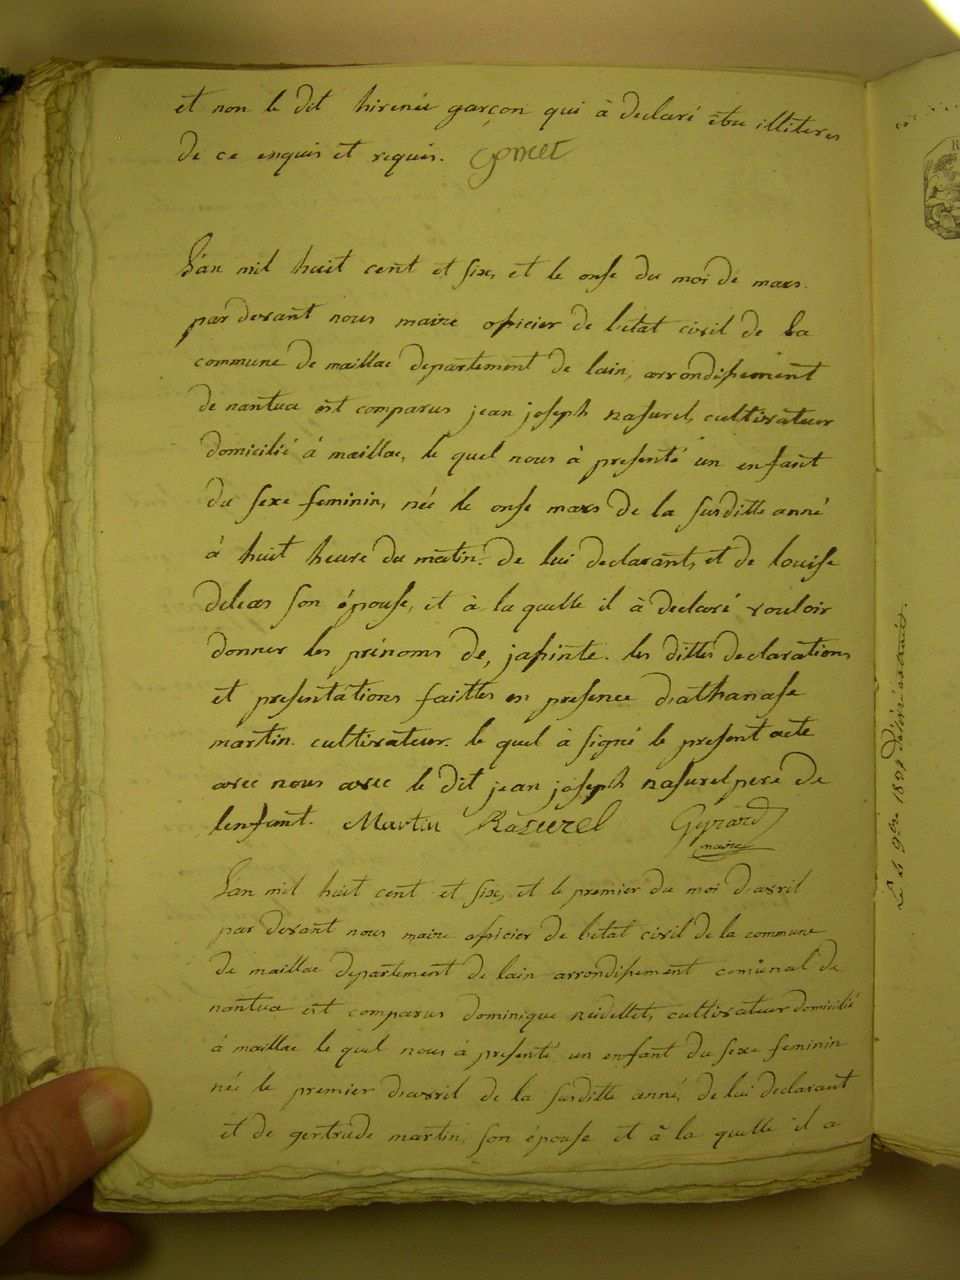 et non le dit hirenée garçon qui à declaré être illiteres
de ce enquis et requis. goncet
L'an mil huit cent et six, et le onse du moi de mars.
par devant nous maire oficier de l'etat civil de la
commune de maillac departement de lain, arrondissement
de nantua est comparus jean joseph rasurel, cultivateur
domicilié à maillac, le quel nous à presenté un enfant
du sexe feminin, née le onse mars de la susditte anné
à huit heure du matin. de lui declarant, et de louise
deleas son épouse, et à la quelle il à declaré vouloir
donner les prénoms de, jasinte. les dittes declarations
et presentations faittes en presence d'athanase
martin. cultivateur. le quel à signé le present acte
avec nous avec le dit jean joseph rasurel pere de
l'enfant. Martin Rasurel Gyrard
maire
L'an mil huit cent et six, et le premier du moi d'avril
par devant nous maire oficier de l'etat civil de la commune
de maillac departement de lain arrondissement comunal de
nantua est comparus dominique neidellet, cultivateur domicilié
à maillac le quel nous à presenté un enfant du sexe feminin
née le premier d'avril de la susditte anné, de lui declarant
et de gertrude martin, son épouse et à la quelle il a
Le 4 9bre 1807 délivré extrait.